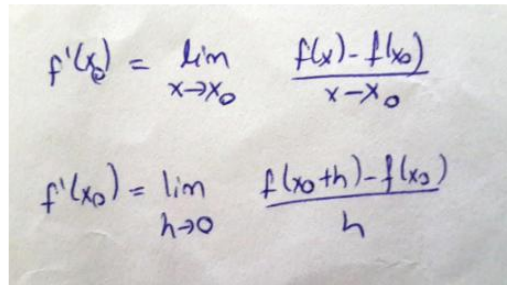 f'(x₀) = lim x→x₀ f(x)-f(x₀) / x-x₀
f'(x₀) = lim h→0 f(x₀+h)-f(x₀) / h